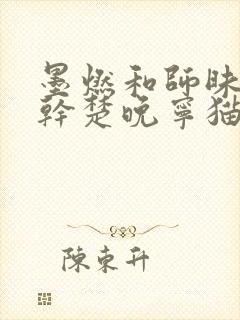 墨燃和師昧
幹楚晚寧猫
陳東升